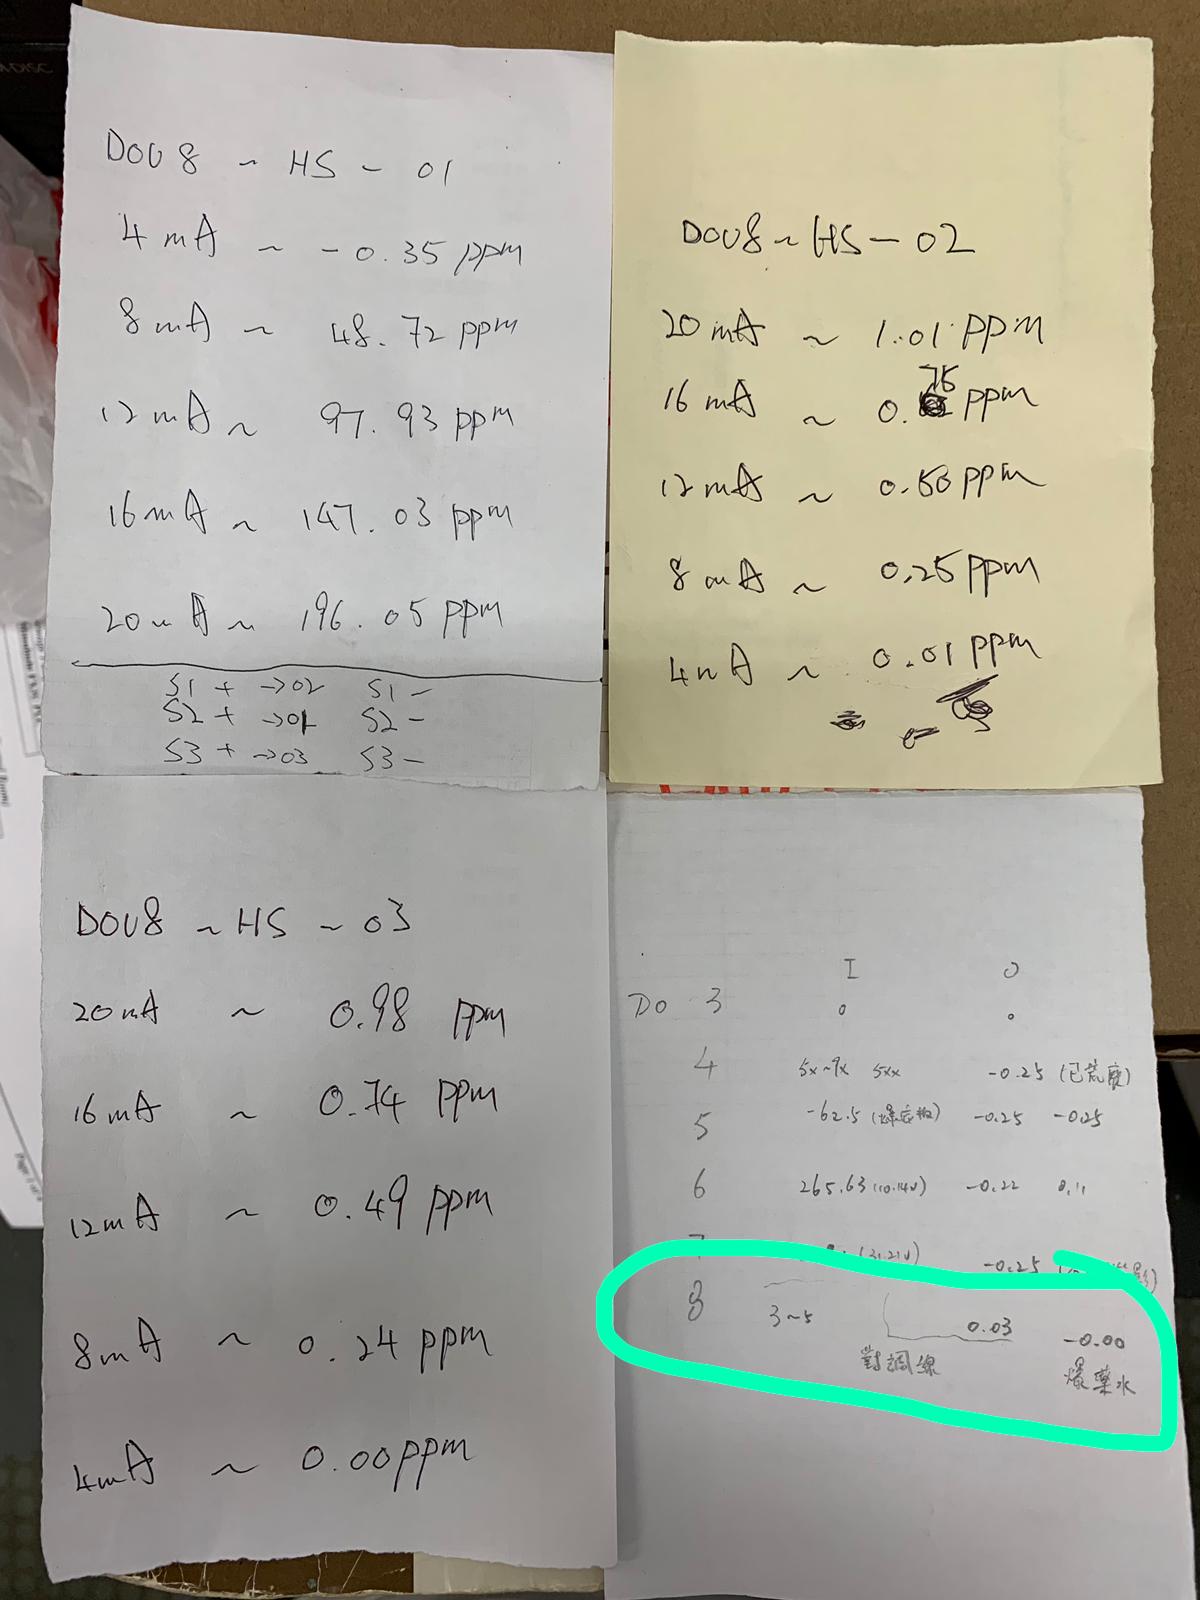 DOU8 ~ HS - 01
4 mA ~ -0.35 ppm
8 mA ~ 48.72 ppm
12 mA ~ 97.93 ppm
16 mA ~ 147.03 ppm
20 mA ~ 196.05 ppm
S1 + →02 S1 -
S2 + →01 S2 -
S3 + →03 S3 -
DOU8 ~ HS - 02
20 mA ~ 1.01 ppm
16 mA ~ 0.75 ppm
12 mA ~ 0.50 ppm
8 mA ~ 0.25 ppm
4 mA ~ 0.01 ppm
DOU8 ~ HS ~ 03
20 mA ~ 0.98 ppm
16 mA ~ 0.74 ppm
12 mA ~ 0.49 ppm
8 mA ~ 0.24 ppm
4 mA ~ 0.00 ppm
I O
DO 3 0 0
4 5x~9x 5xx -0.25 (已荒廢)
5 -62.5 (爆底板) -0.25 -0.25
6 265.63 (10.14V) -0.22 0.11
7 (31.21V) -0.25
8 3~5 0.03 -0.00
對調線 爆藥水